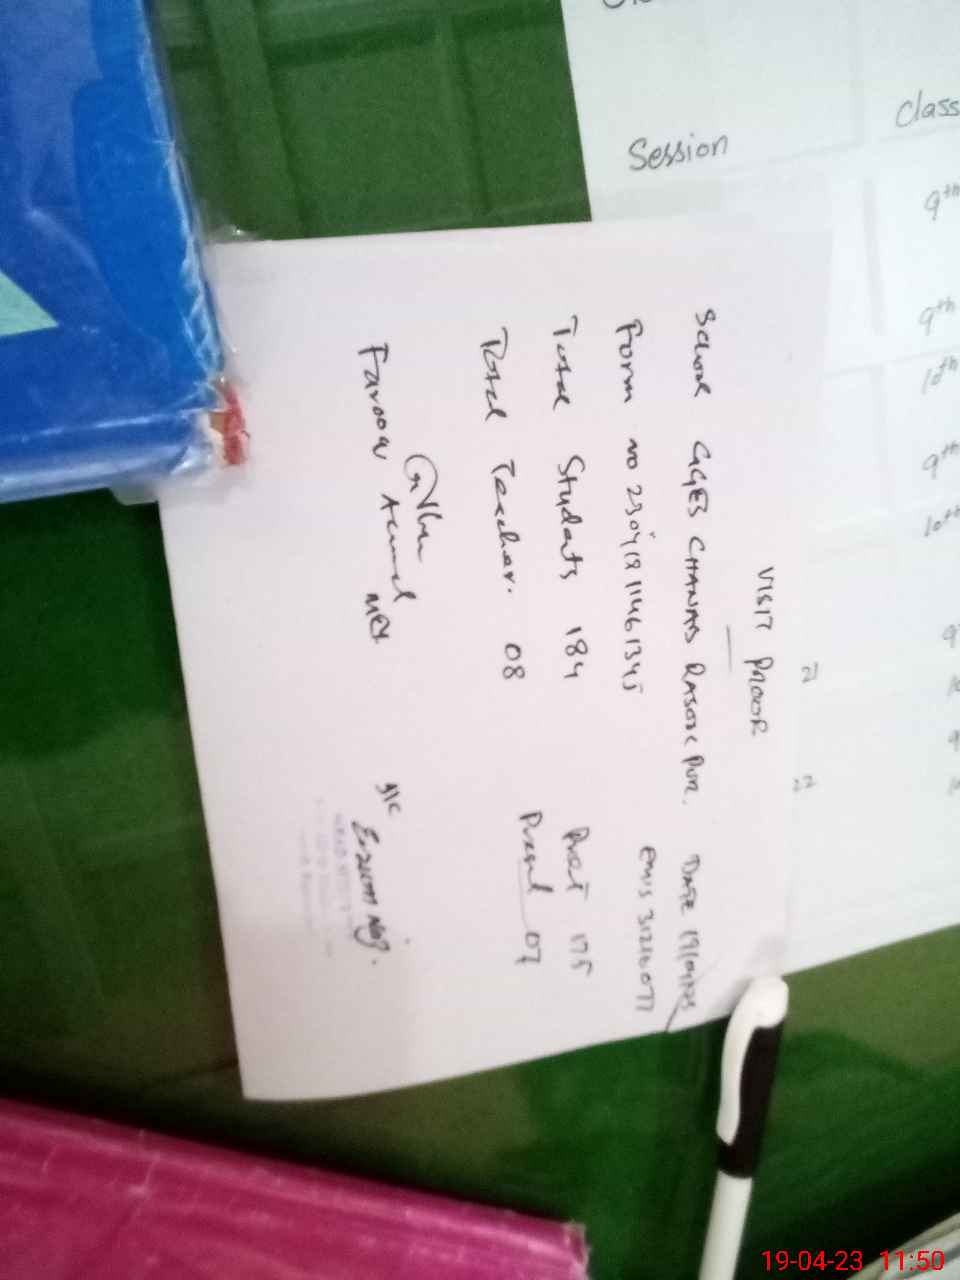 Session
Class
9th
9th
10th
9th
10th
21
22
VISIT PROOR
School GGES CHANAB RASOOL PUR. DATE 19/04/23
Form no 23041911461345 EMIS 31210077
Total Students 184 Pret 175
Total Teacher. 08 Present 07
Farooq Ahmed MEA
19-04-23 11:50